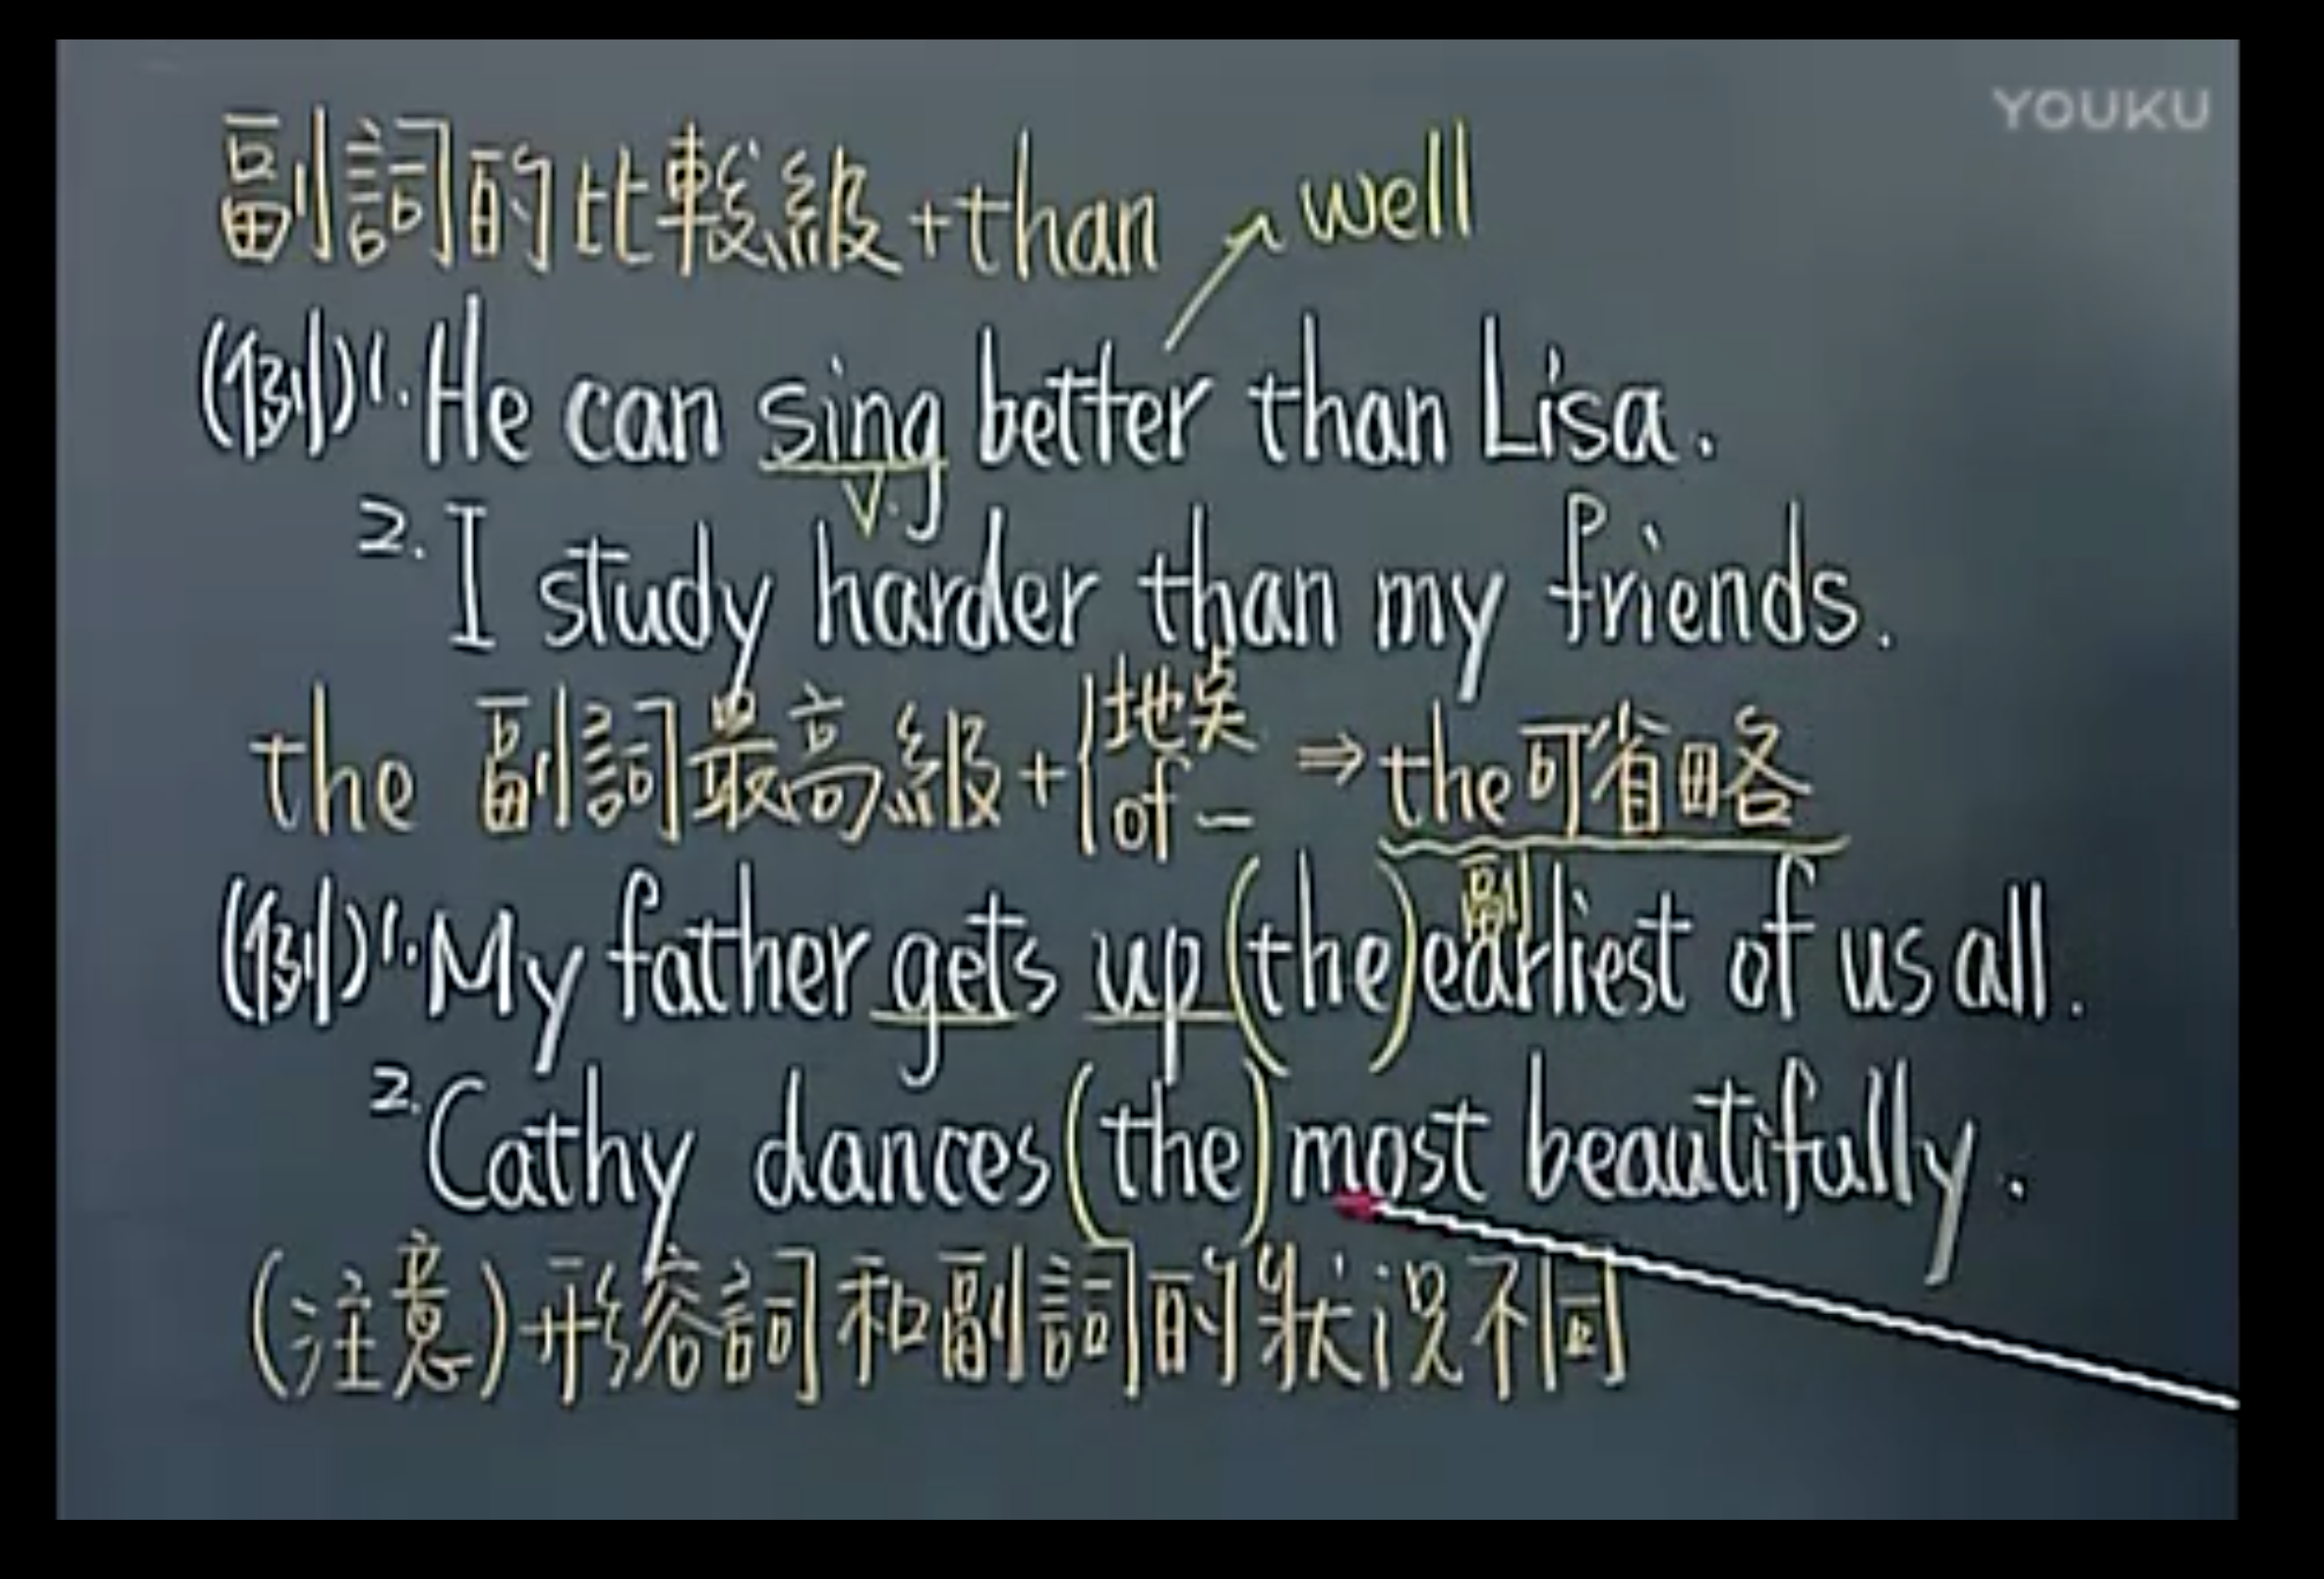 YOUKU
副詞的比較級+than
well
(例)1. He can sing better than Lisa.
v.
2. I study harder than my friends.
the 副詞最高級+{地点 of — ⇒ the可省略
副
(例)1. My father gets up (the) earliest of us all.
2. Cathy dances (the) most beautifully.
(注意)形容詞和副詞的狀況不同